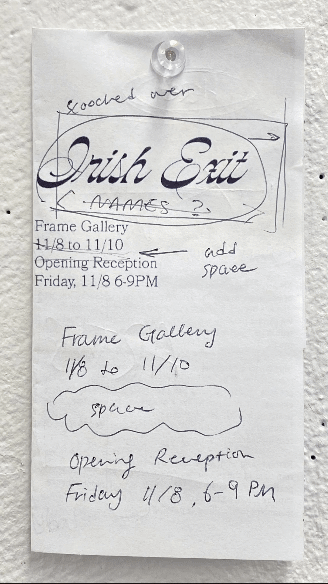 scooched over
Irish Exit
NAMES ?
Frame Gallery
11/8 to 11/10
Opening Reception
Friday, 11/8 6-9PM
add
space
Frame Gallery
11/8 to 11/10
space
Opening Reception
Friday 11/8, 6-9 PM